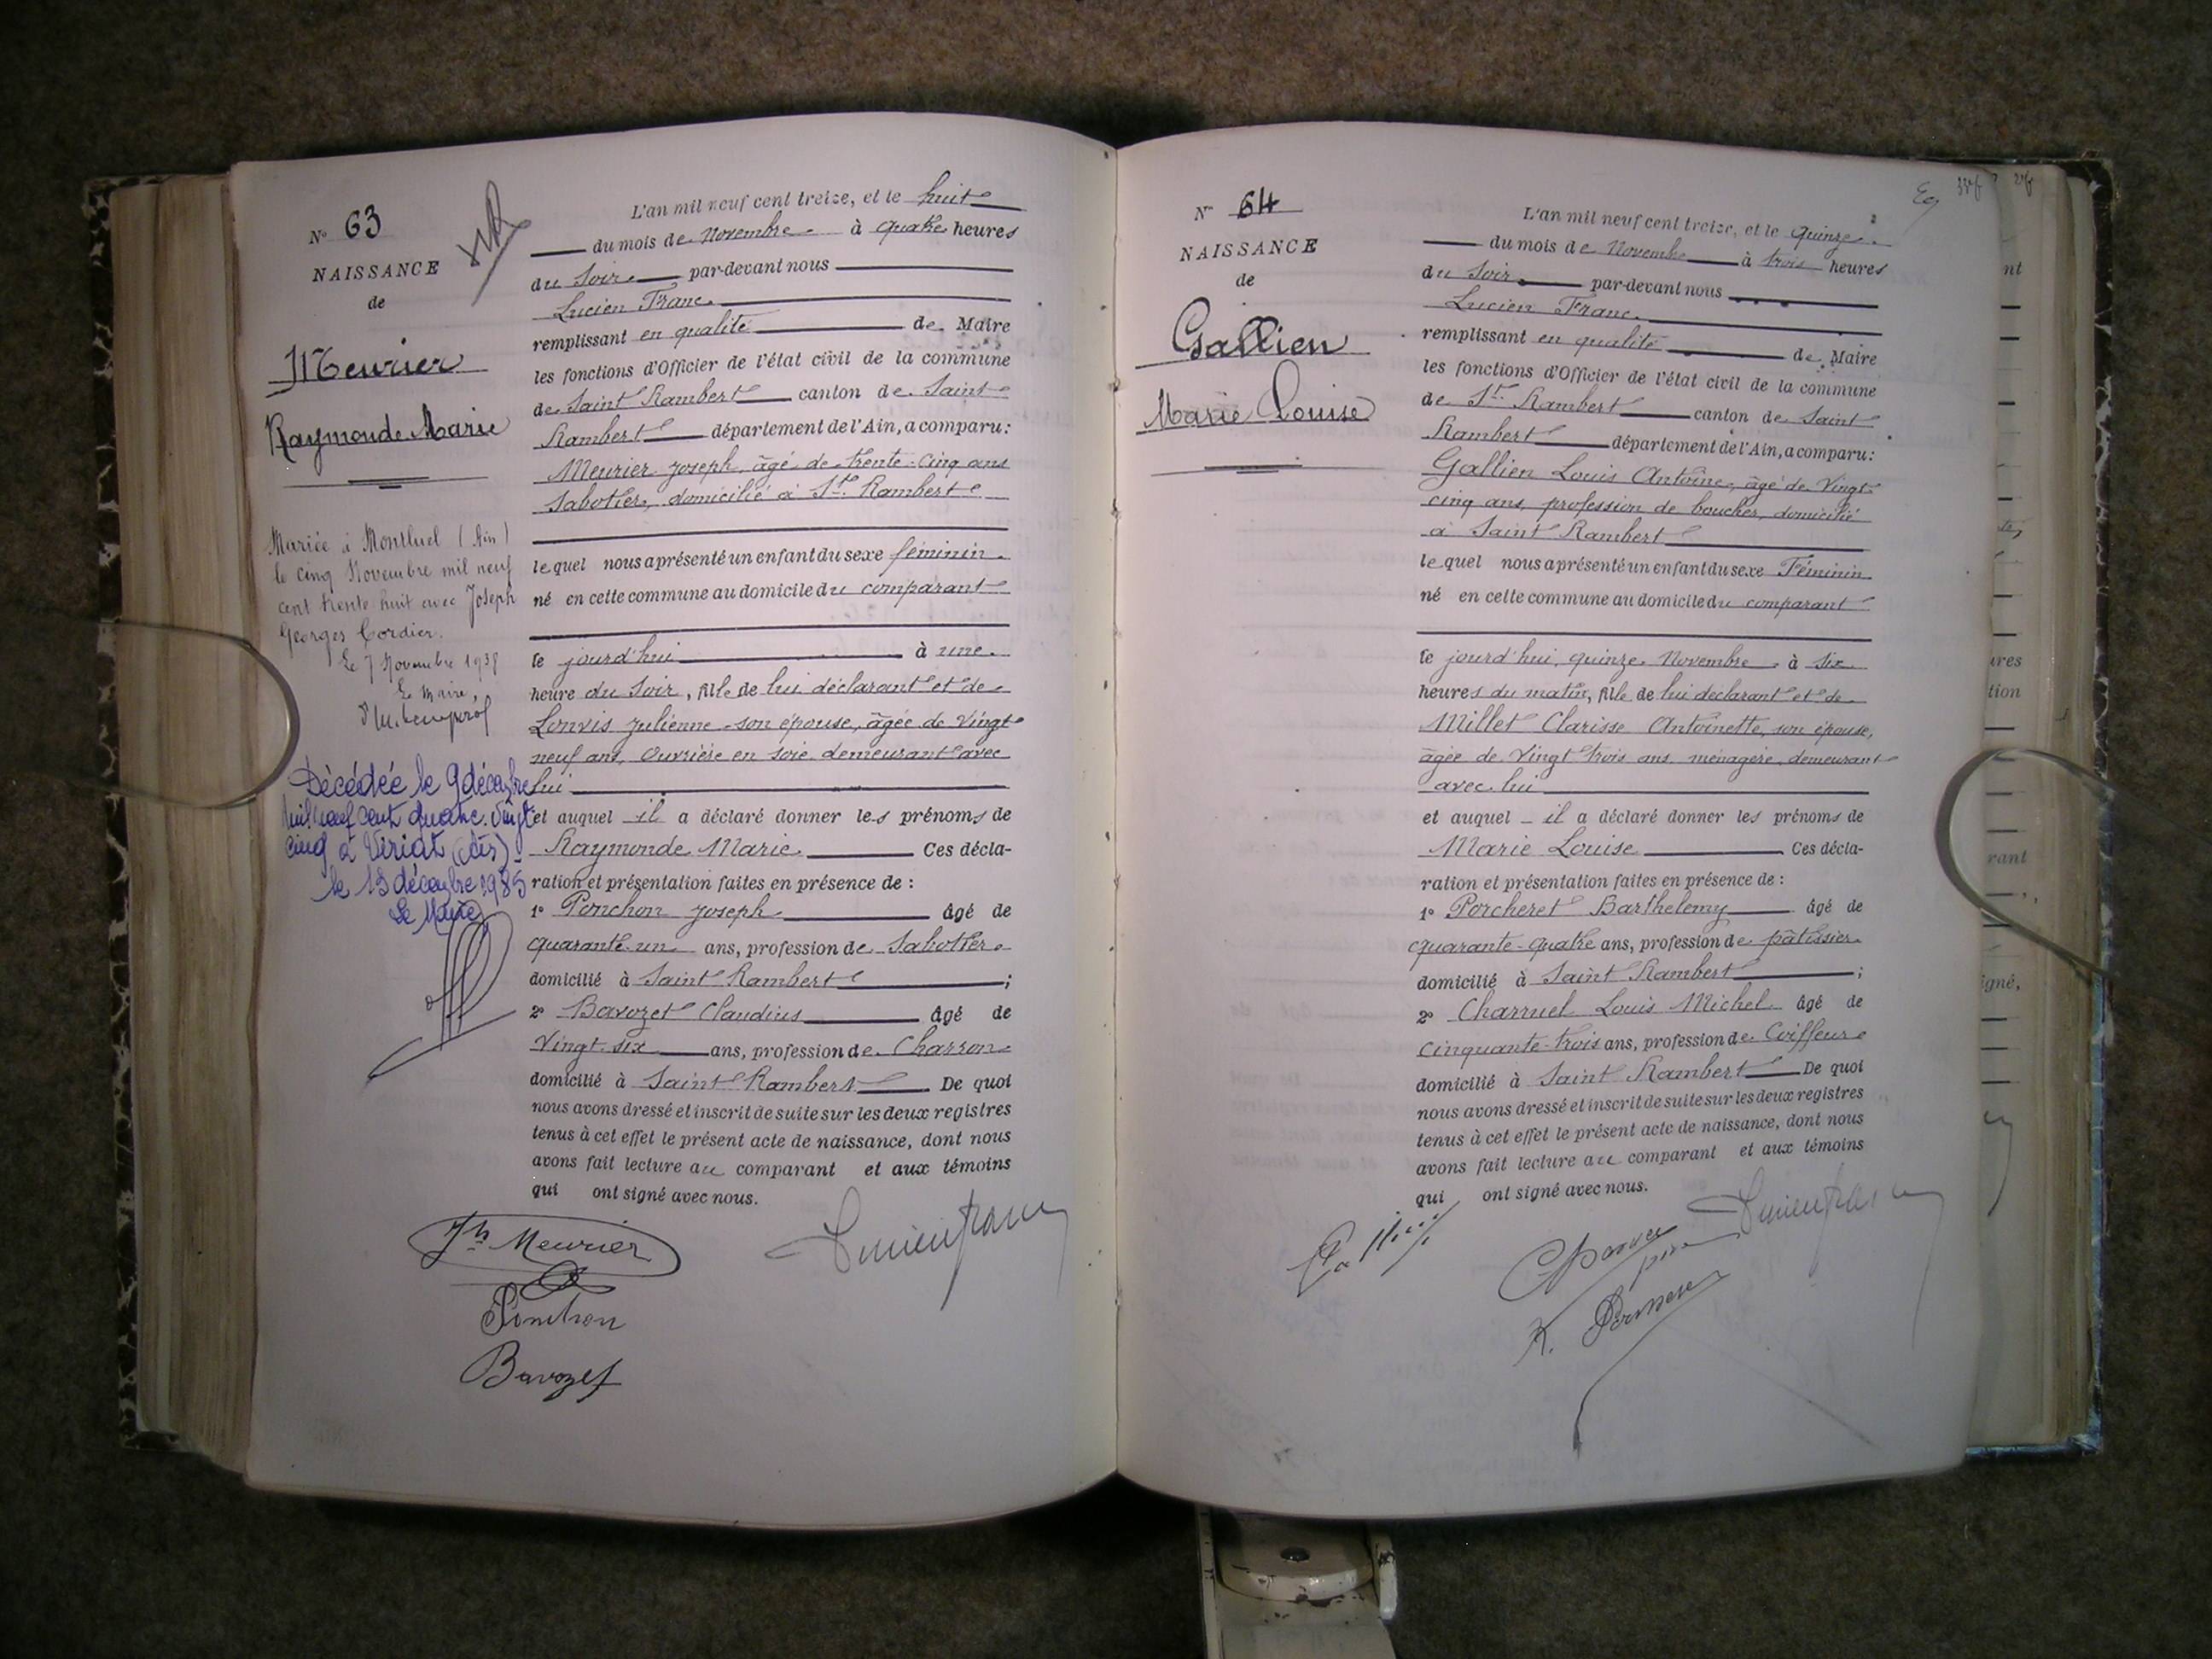 N° 63
NAISSANCE
de
Meurier
Raymonde Marie
Mariée à Montluel (Ain)
le cinq Novembre mil neuf
cent trente huit avec Joseph
Georges Cordier.
Le 7 Novembre 1938
Le Maire,
Décédée le 9 décembre
mil neuf cent quatre-vingt
cinq à Viriat (Ain)
le 13 décembre 1985
Le Maire,
L'an mil neuf cent treize, et le huit
du mois de Novembre à quatre heures
du Soir par-devant nous
Lucien Franc
remplissant en qualité de Maire
les fonctions d'Officier de l'état civil de la commune
de Saint Rambert canton de Saint
Rambert département de l'Ain, a comparu :
Meurier Joseph, âgé de trente-cinq ans
Sabotier, domicilié à St. Rambert
lequel nous a présenté un enfant du sexe féminin
né en cette commune au domicile du comparant
le jourd'hui à une
heure du Soir, fille de lui déclarant et de
Lonvis Julienne son épouse, âgée de Vingt
neuf ans, Ouvrière en soie demeurant avec
lui
et auquel il a déclaré donner les prénoms de
Raymonde Marie Ces décla-
ration et présentation faites en présence de :
1° Ponchon Joseph âgé de
quarante-un ans, profession de Sabotier
domicilié à Saint Rambert ;
2° Bavozet Claudius âgé de
Vingt-six ans, profession de Charron
domicilié à Saint Rambert De quoi
nous avons dressé et inscrit de suite sur les deux registres
tenus à cet effet le présent acte de naissance, dont nous
avons fait lecture au comparant et aux témoins
qui ont signé avec nous.
Jh Meurier
Lucien Franc
Ponchon
Bavozet
N° 64
NAISSANCE
de
Gallien
Marie Louise
L'an mil neuf cent treize, et le quinze
du mois de Novembre à trois heures
du Soir par-devant nous
Lucien Franc
remplissant en qualité de Maire
les fonctions d'Officier de l'état civil de la commune
de St. Rambert canton de Saint
Rambert département de l'Ain, a comparu :
Gallien Louis Antoine, âgé de Vingt-
cinq ans, profession de boucher, domicilié
à Saint Rambert
lequel nous a présenté un enfant du sexe Féminin
né en cette commune au domicile du comparant
le jourd'hui, quinze Novembre à six
heures du matin, fille de lui déclarant et de
Millet Clarisse Antoinette, son épouse,
âgée de Vingt trois ans, ménagère, demeurant
avec lui
et auquel il a déclaré donner les prénoms de
Marie Louise Ces décla-
ration et présentation faites en présence de :
1° Porcheret Barthelemy âgé de
quarante-quatre ans, profession de pâtissier
domicilié à Saint Rambert ;
2° Charruel Louis Michel âgé de
cinquante-trois ans, profession de Coiffeur
domicilié à Saint Rambert De quoi
nous avons dressé et inscrit de suite sur les deux registres
tenus à cet effet le présent acte de naissance, dont nous
avons fait lecture au comparant et aux témoins
qui ont signé avec nous.
Gallien
Lucien Franc